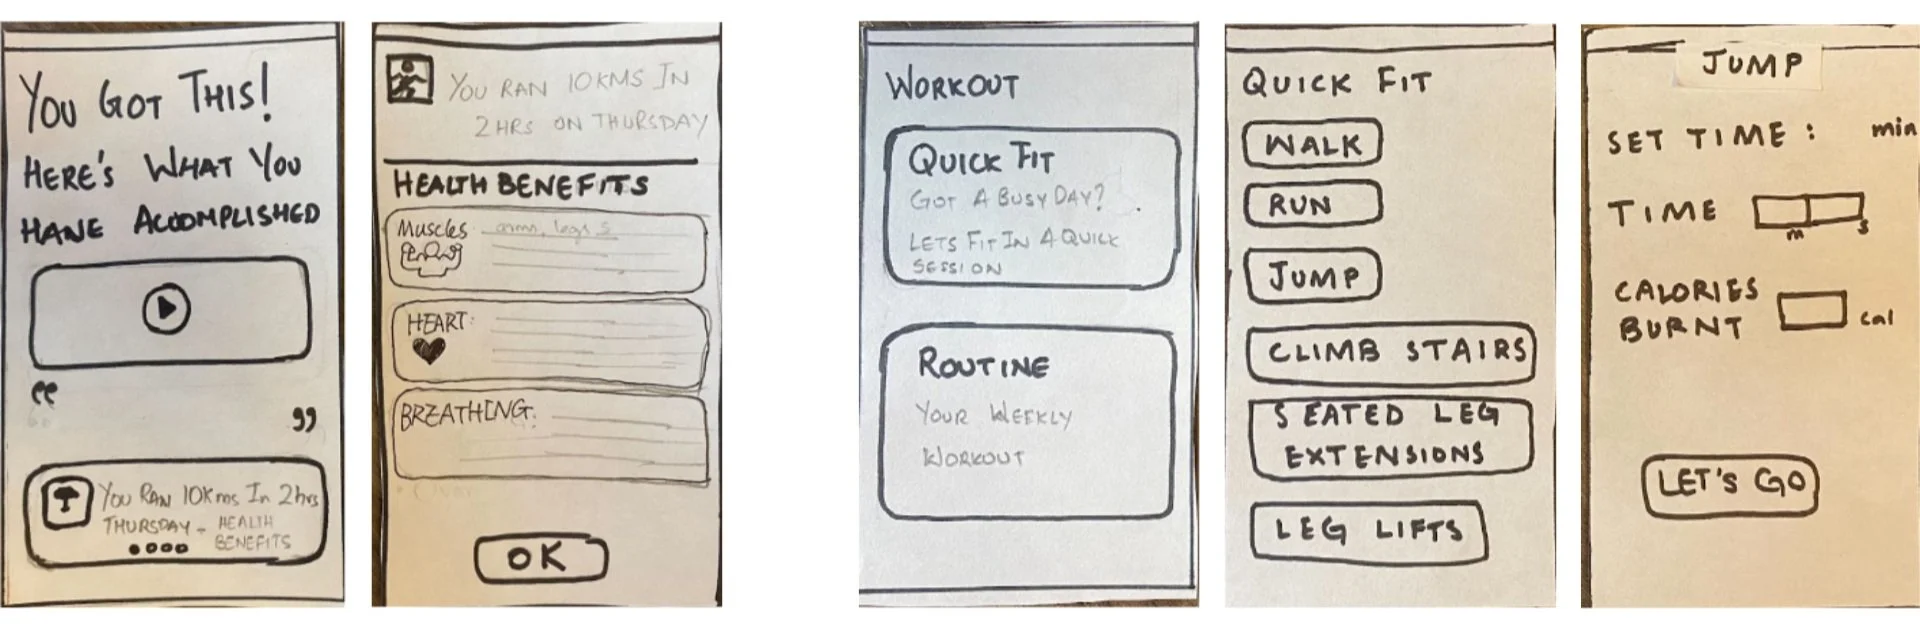 YOU GOT THIS!
HERE'S WHAT YOU
HANE ACCOMPLISHED
“
”
YOU RAN 10Kms In 2hrs
THURSDAY - HEALTH
BENEFITS
YOU RAN 10KMS IN
2HRS ON THURSDAY
HEALTH BENEFITS
Muscles arms, legs
HEART:
BREATHING:
OK
WORKOUT
QUICK FIT
GOT A BUSY DAY?
LETS FIT IN A QUICK
SESSION
ROUTINE
YOUR WEEKLY
WORKOUT
QUICK FIT
WALK
RUN
JUMP
CLIMB STAIRS
SEATED LEG
EXTENSIONS
LEG LIFTS
JUMP
SET TIME : min
TIME
m s
CALORIES
BURNT cal
LET'S GO